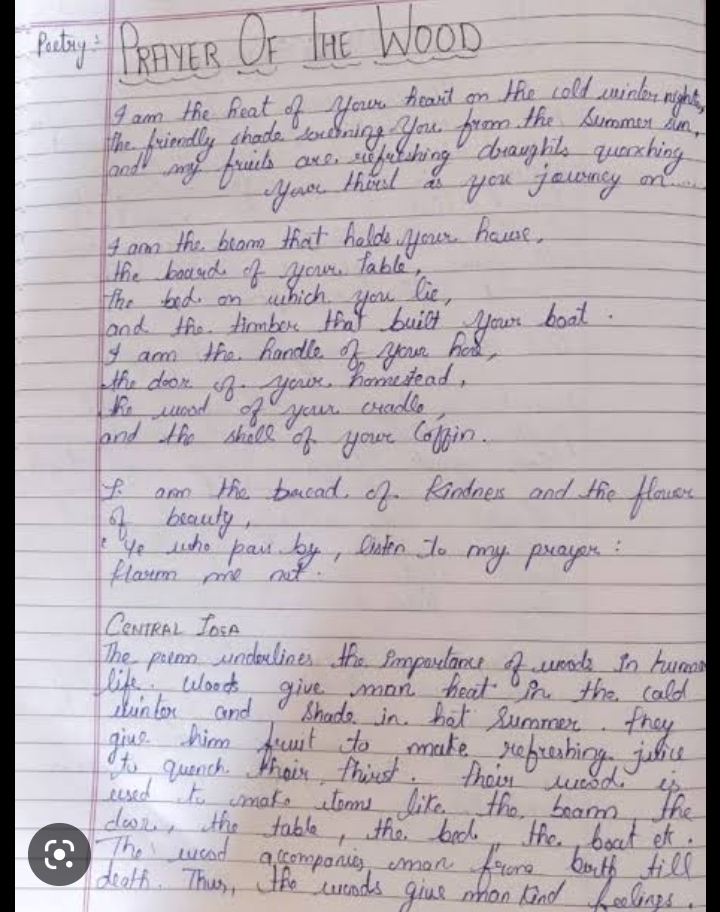 Poetry :- PRAYER OF THE WOOD
I am the heat of your heart on the cold winter nights,
the friendly shade screening you from the Summer sun,
and my fruits are refreshing draughts quenching
your thirst as you journey on.....
I am the beam that holds your house,
the board of your table,
the bed on which you lie,
and the timber that built your boat.
I am the handle of your hoe,
the door of your homestead,
the wood of your cradle,
and the shell of your Coffin.
I am the bread of Kindness and the flower
of beauty,
'Ye who pass by, listen to my prayer:
Harm me not.
CENTRAL IDEA
The poem underlines the importance of woods in human
life. Woods give man heat in the cold
winter and shade in hot Summer. They
give him fruit to make refreshing juice
to quench their thirst. Their wood is
used to make items like the beam the
door, the table, the bed, the boat etc.
The wood accompanies man from birth till
death. Thus, the woods give man kind feelings.